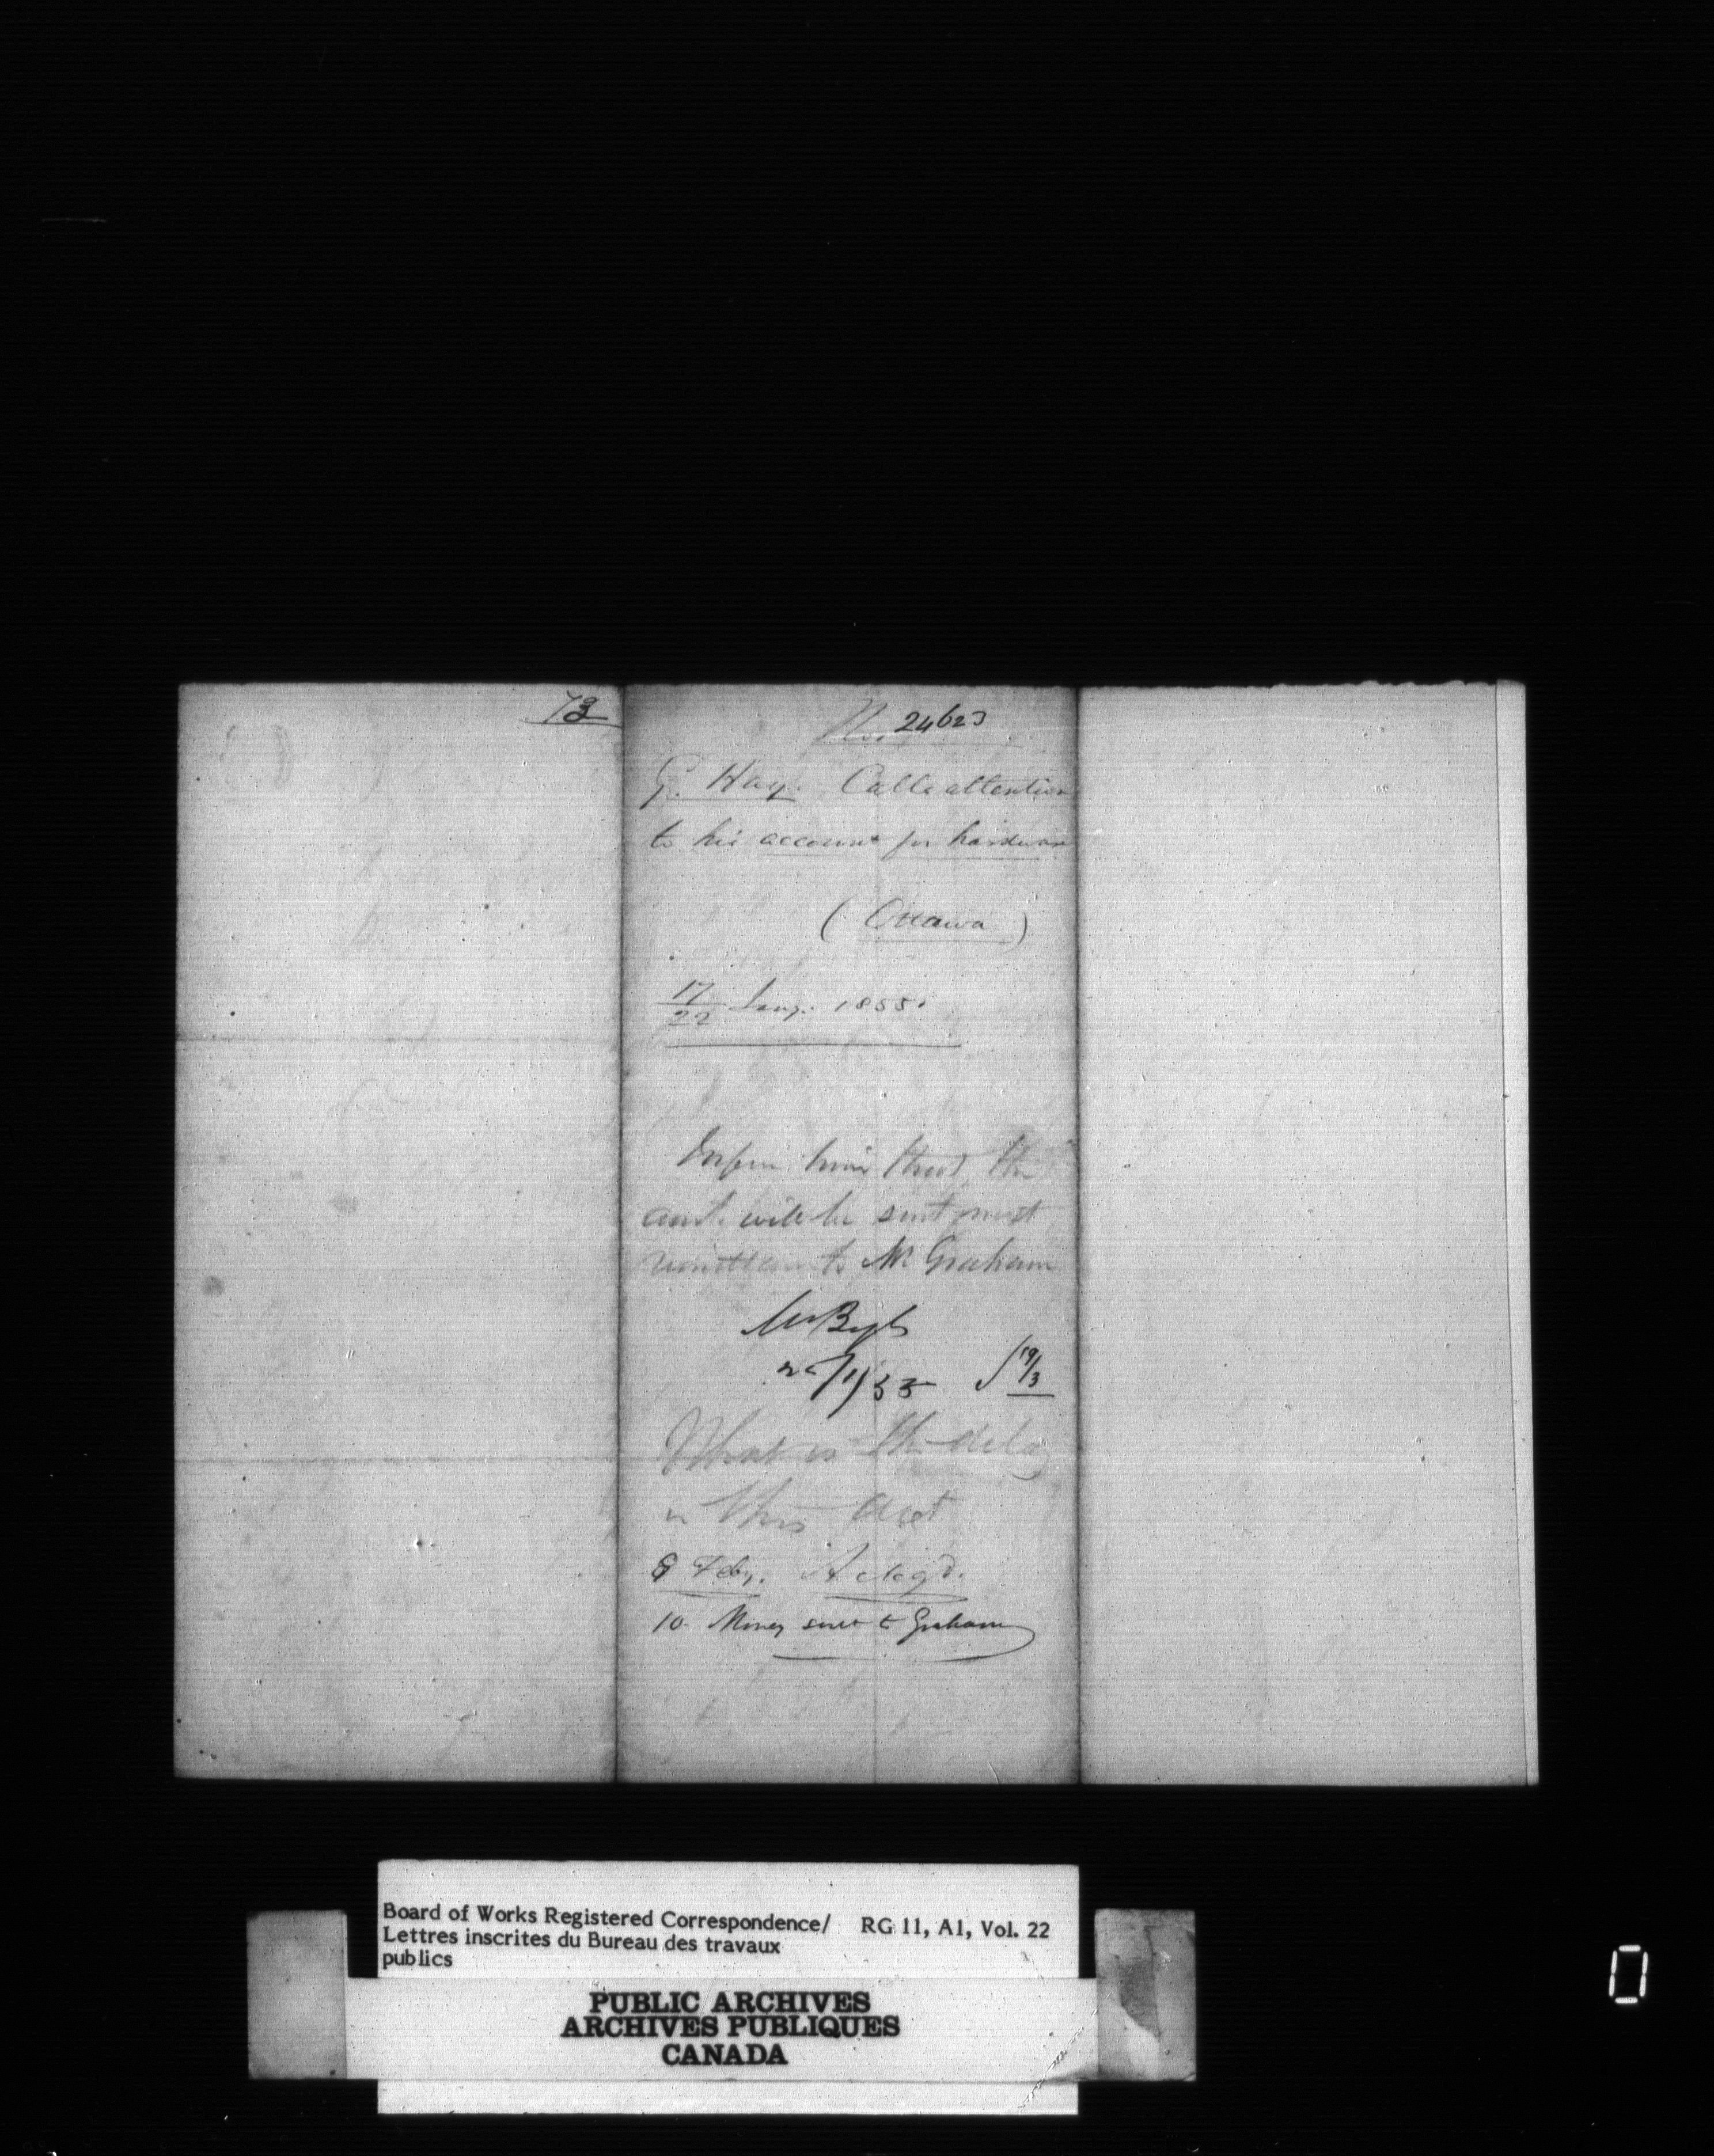 73
No. 24623
G. Hay. Calls attention
to his account for hardware
(Ottawa)
17/22 Jany. 1855.
Inform him that the
amt. will be sent next
remittance to Mr Graham
/1/55 19/3
What is the delay
in this acct
9 Feby. Ackgd.
10. Money sent to Graham
Board of Works Registered Correspondence/ RG 11, A1, Vol. 22
Lettres inscrites du Bureau des travaux
publics
PUBLIC ARCHIVES
ARCHIVES PUBLIQUES
CANADA
0